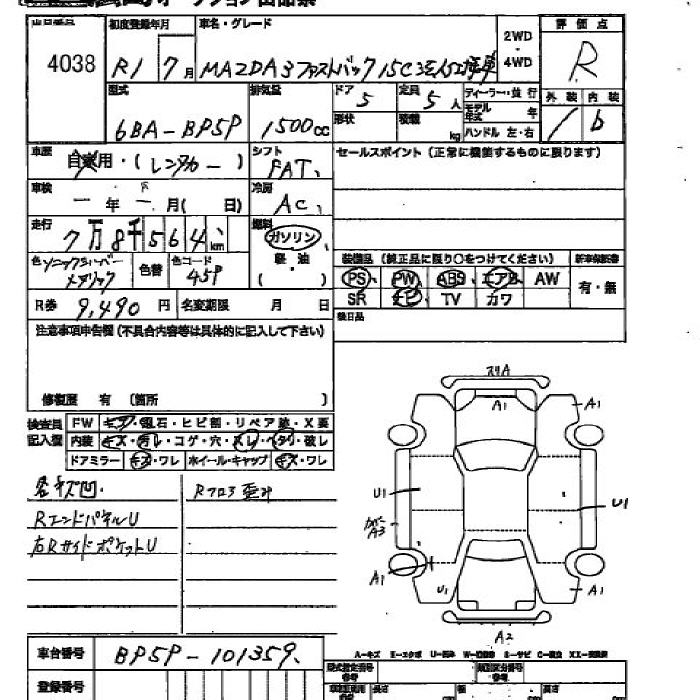 出品番号 初度登録年月 車名・グレード 2WD・4WD 評価点
4038 R1 7月 MAZDA3 ファストバック 15C R
型式 排気量 ドア 5 定員 5人 ディーラー・並行 外装 内装
6BA-BP5P 1500cc 形状 積載 kg モデル年式 年 b
ハンドル 左・右
車歴 自家用・(レンタカー) シフト FAT セールスポイント (正常に機能するものに限ります)
車検 一年一月( 日) 冷房 AC
走行 7万8千564km 燃料 ガソリン 軽・油 ( )
色 ソニックシルバーメタリック 色替 色コード 45P
装備品 (純正品に限り○をつけてください) 新車保証書
PS PW ABS エアB AW 有・無
SR ナビ TV カワ
R券 9,490円 名変期限 月 日 後日品
注意事項申告欄 (不具合内容等は具体的に記入して下さい)
修復歴 有 (箇所 )
検査員記入欄 FW キズ・飛石・ヒビ割・リペア跡・X要
内装 キズ・汚レ・コゲ・穴・スレ・ヘタリ・破レ
ドアミラー キズ・ワレ ホイール・キャップ キズ・ワレ
各キズ凹. Rフロア歪み
RエンドパネルU
右RサイドポケットU
スリA
A1 A1
U1 U1
カバーA3
A1 U1 A1
A2
A-キズ U-凹み
車台番号 BP5P-101359
登録番号